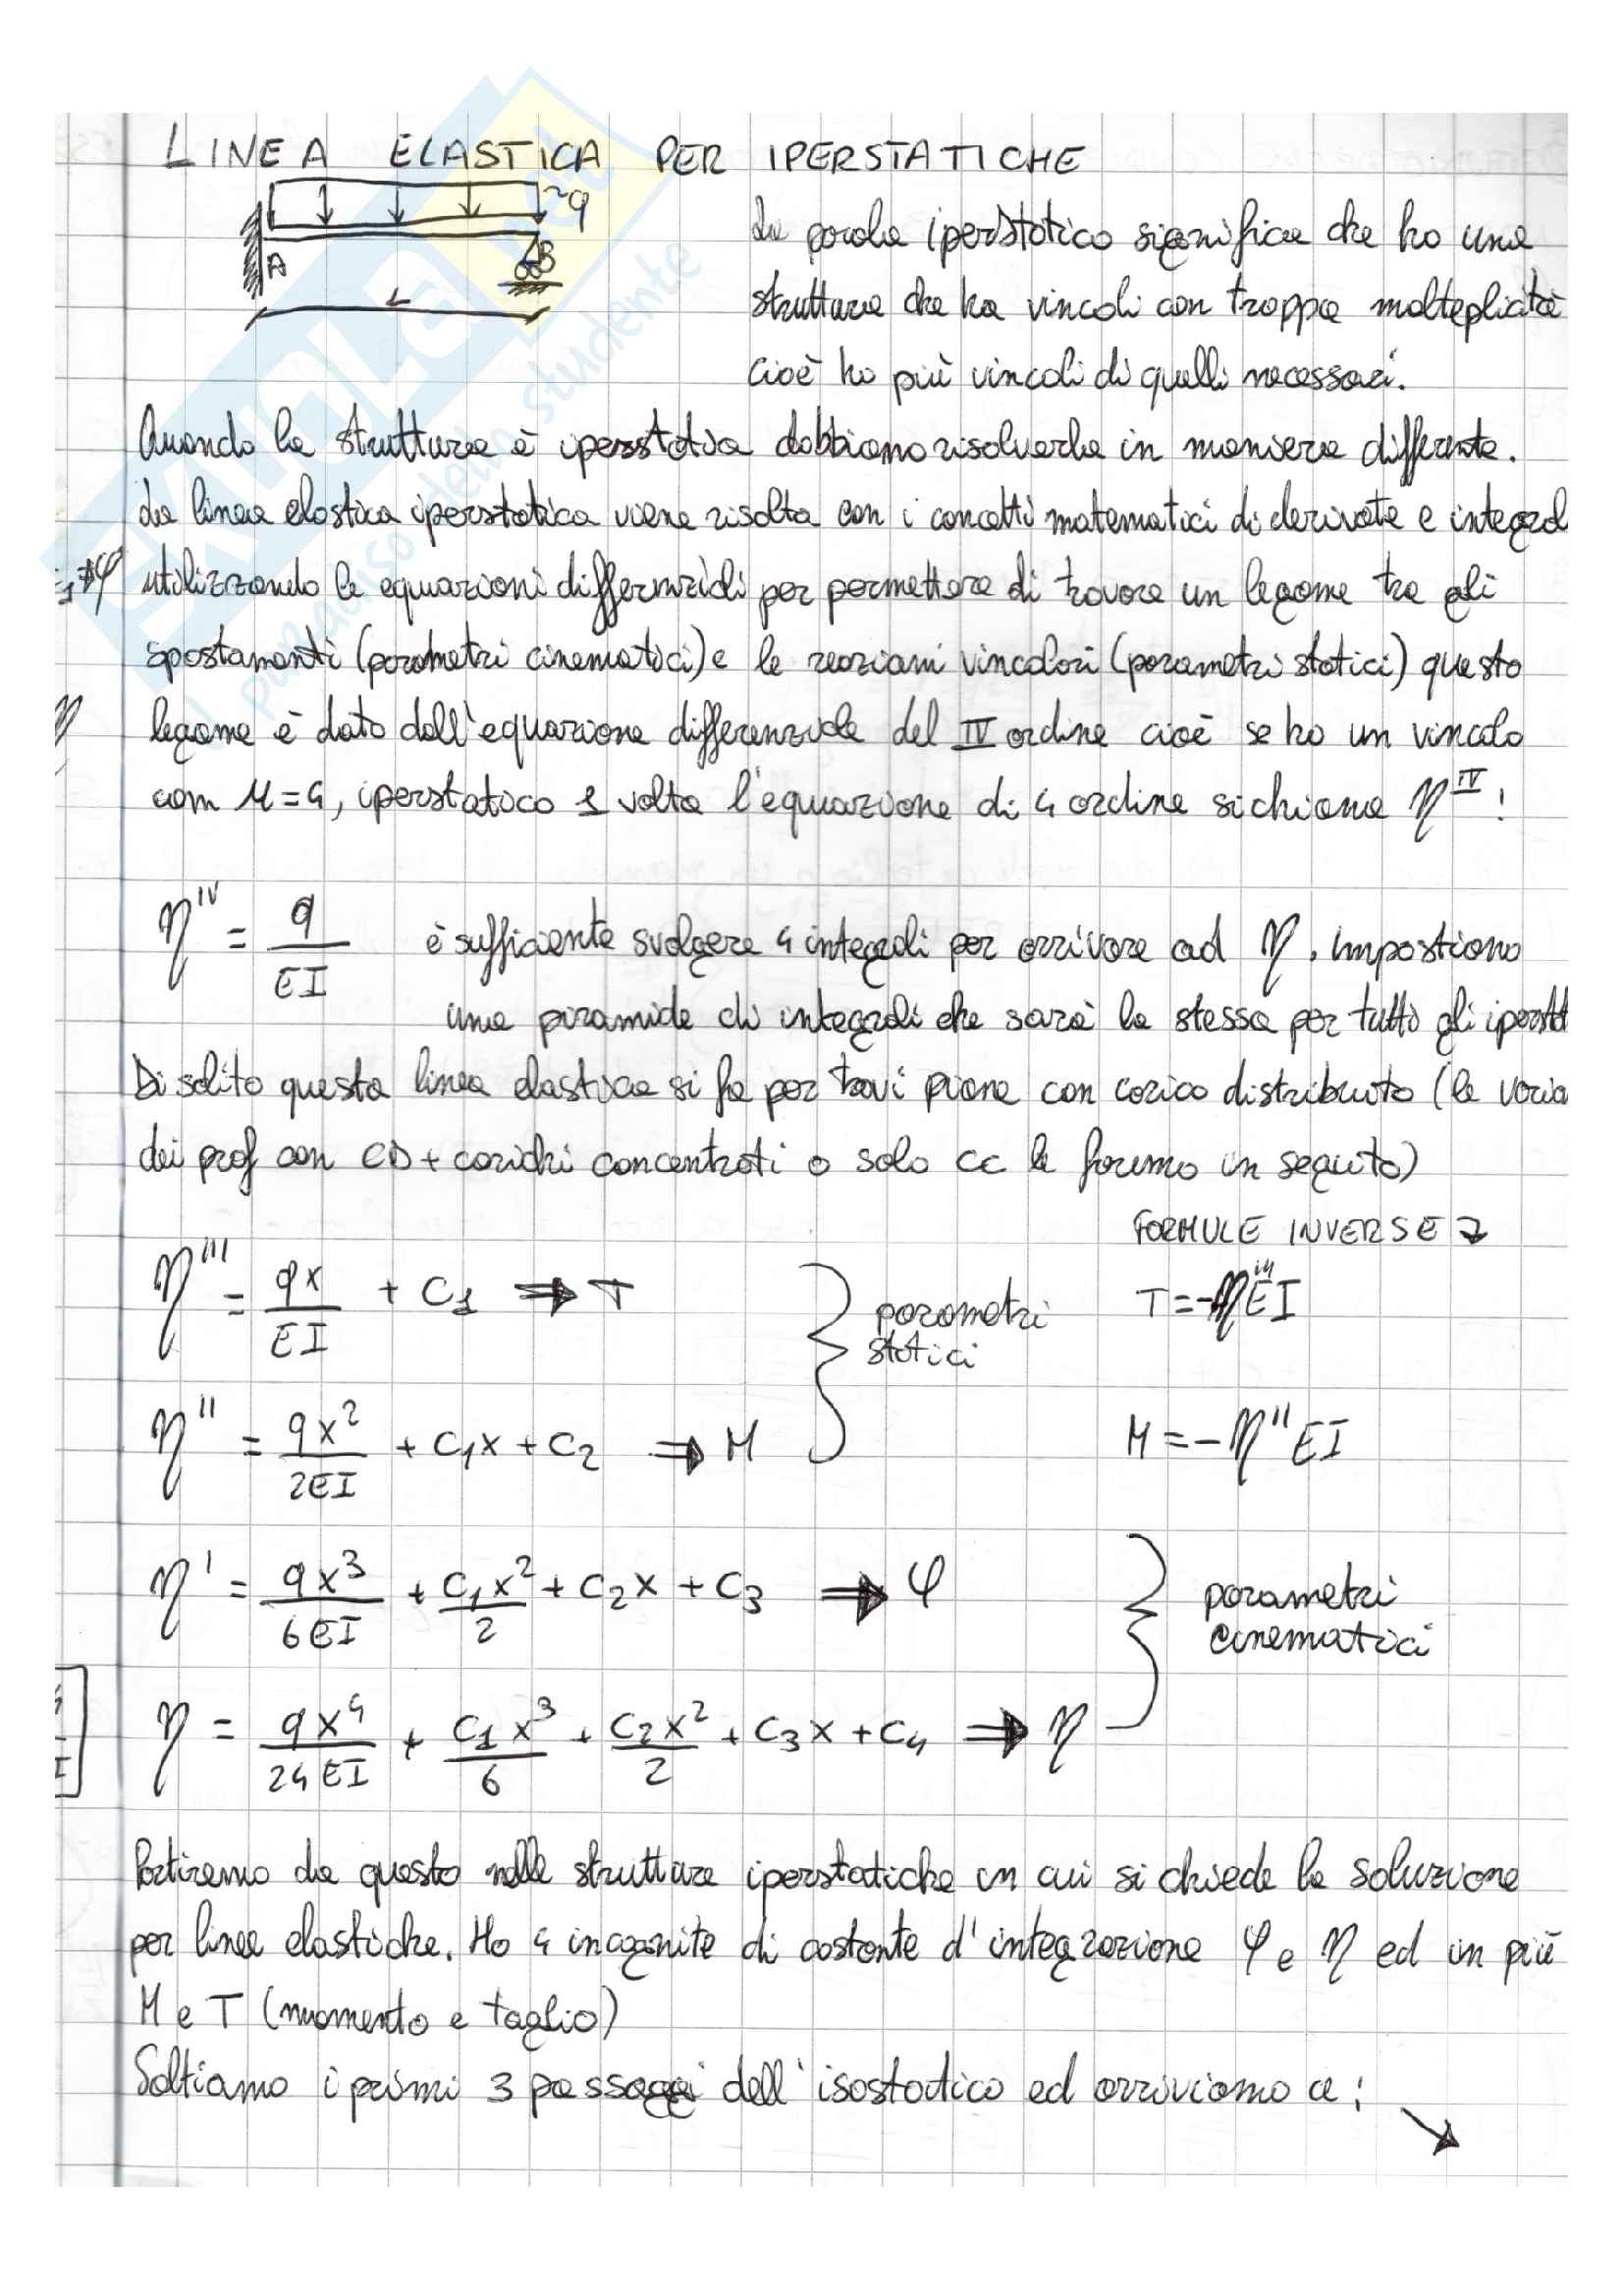 LINEA ELASTICA PER IPERSTATICHE
q
A
B
L
La parola iperstatico significa che ho una
struttura che ha vincoli con troppa molteplicità
cioè ho più vincoli di quelli necessari.
Quando la struttura è iperstatica dobbiamo risolverla in maniera differente.
La linea elastica iperstatica viene risolta con i concetti matematici di derivate e integral
utilizzando le equazioni differenziali per permettere di trovare un legame tra gli
spostamenti (parametri cinematici) e le reazioni vincolari (parametri statici) questo
legame è dato dall'equazione differenziale del IV ordine cioè se ho un vincolo
com M=4, iperstatico 1 volta l'equazione di 4 ordine si chiama η^IV!
η^IV = q/EI è sufficiente svolgere 4 integrali per arrivare ad η. Impostiamo
una piramide di integrali che sarà la stessa per tutti gli iperstat
Di solito questa linea elastica si fa per travi piane con carico distribuito (le varia
dei prof con CD + carichi concentrati o solo CC le faremo in seguito)
FORMULE INVERSE
η''' = qx/EI + C1 ⇒ T
parametri
statici
T = -η'''EI
η'' = qx²/2EI + C1x + C2 ⇒ M
M = -η''EI
η' = qx³/6EI + C1x²/2 + C2x + C3 ⇒ φ
parametri
cinematici
η = qx⁴/24EI + C1x³/6 + C2x²/2 + C3x + C4 ⇒ η
Partiremo da questo nelle strutture iperstatiche in cui si chiede la soluzione
per linee elastiche. Ho 4 incognite di costante d'integrazione φ e η ed in più
M e T (momento e taglio)
Saltiamo i primi 3 passaggi dell'isostatico ed arriviamo a:
il paradiso dello studente